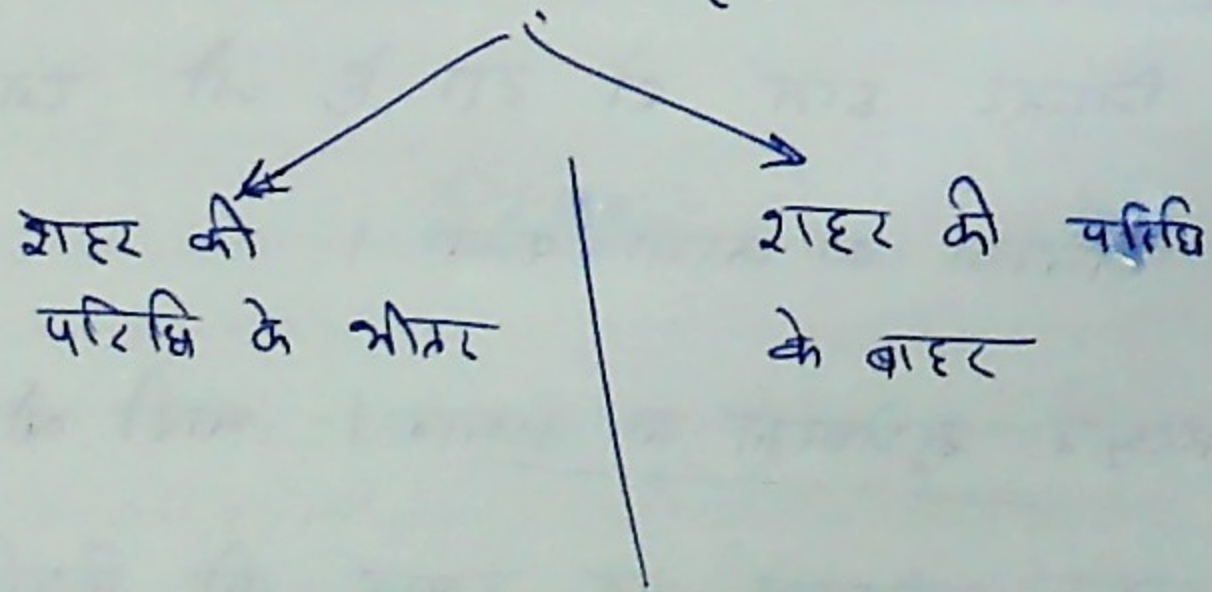 शहर की
परिधि के भीतर
शहर की परिधि
के बाहर